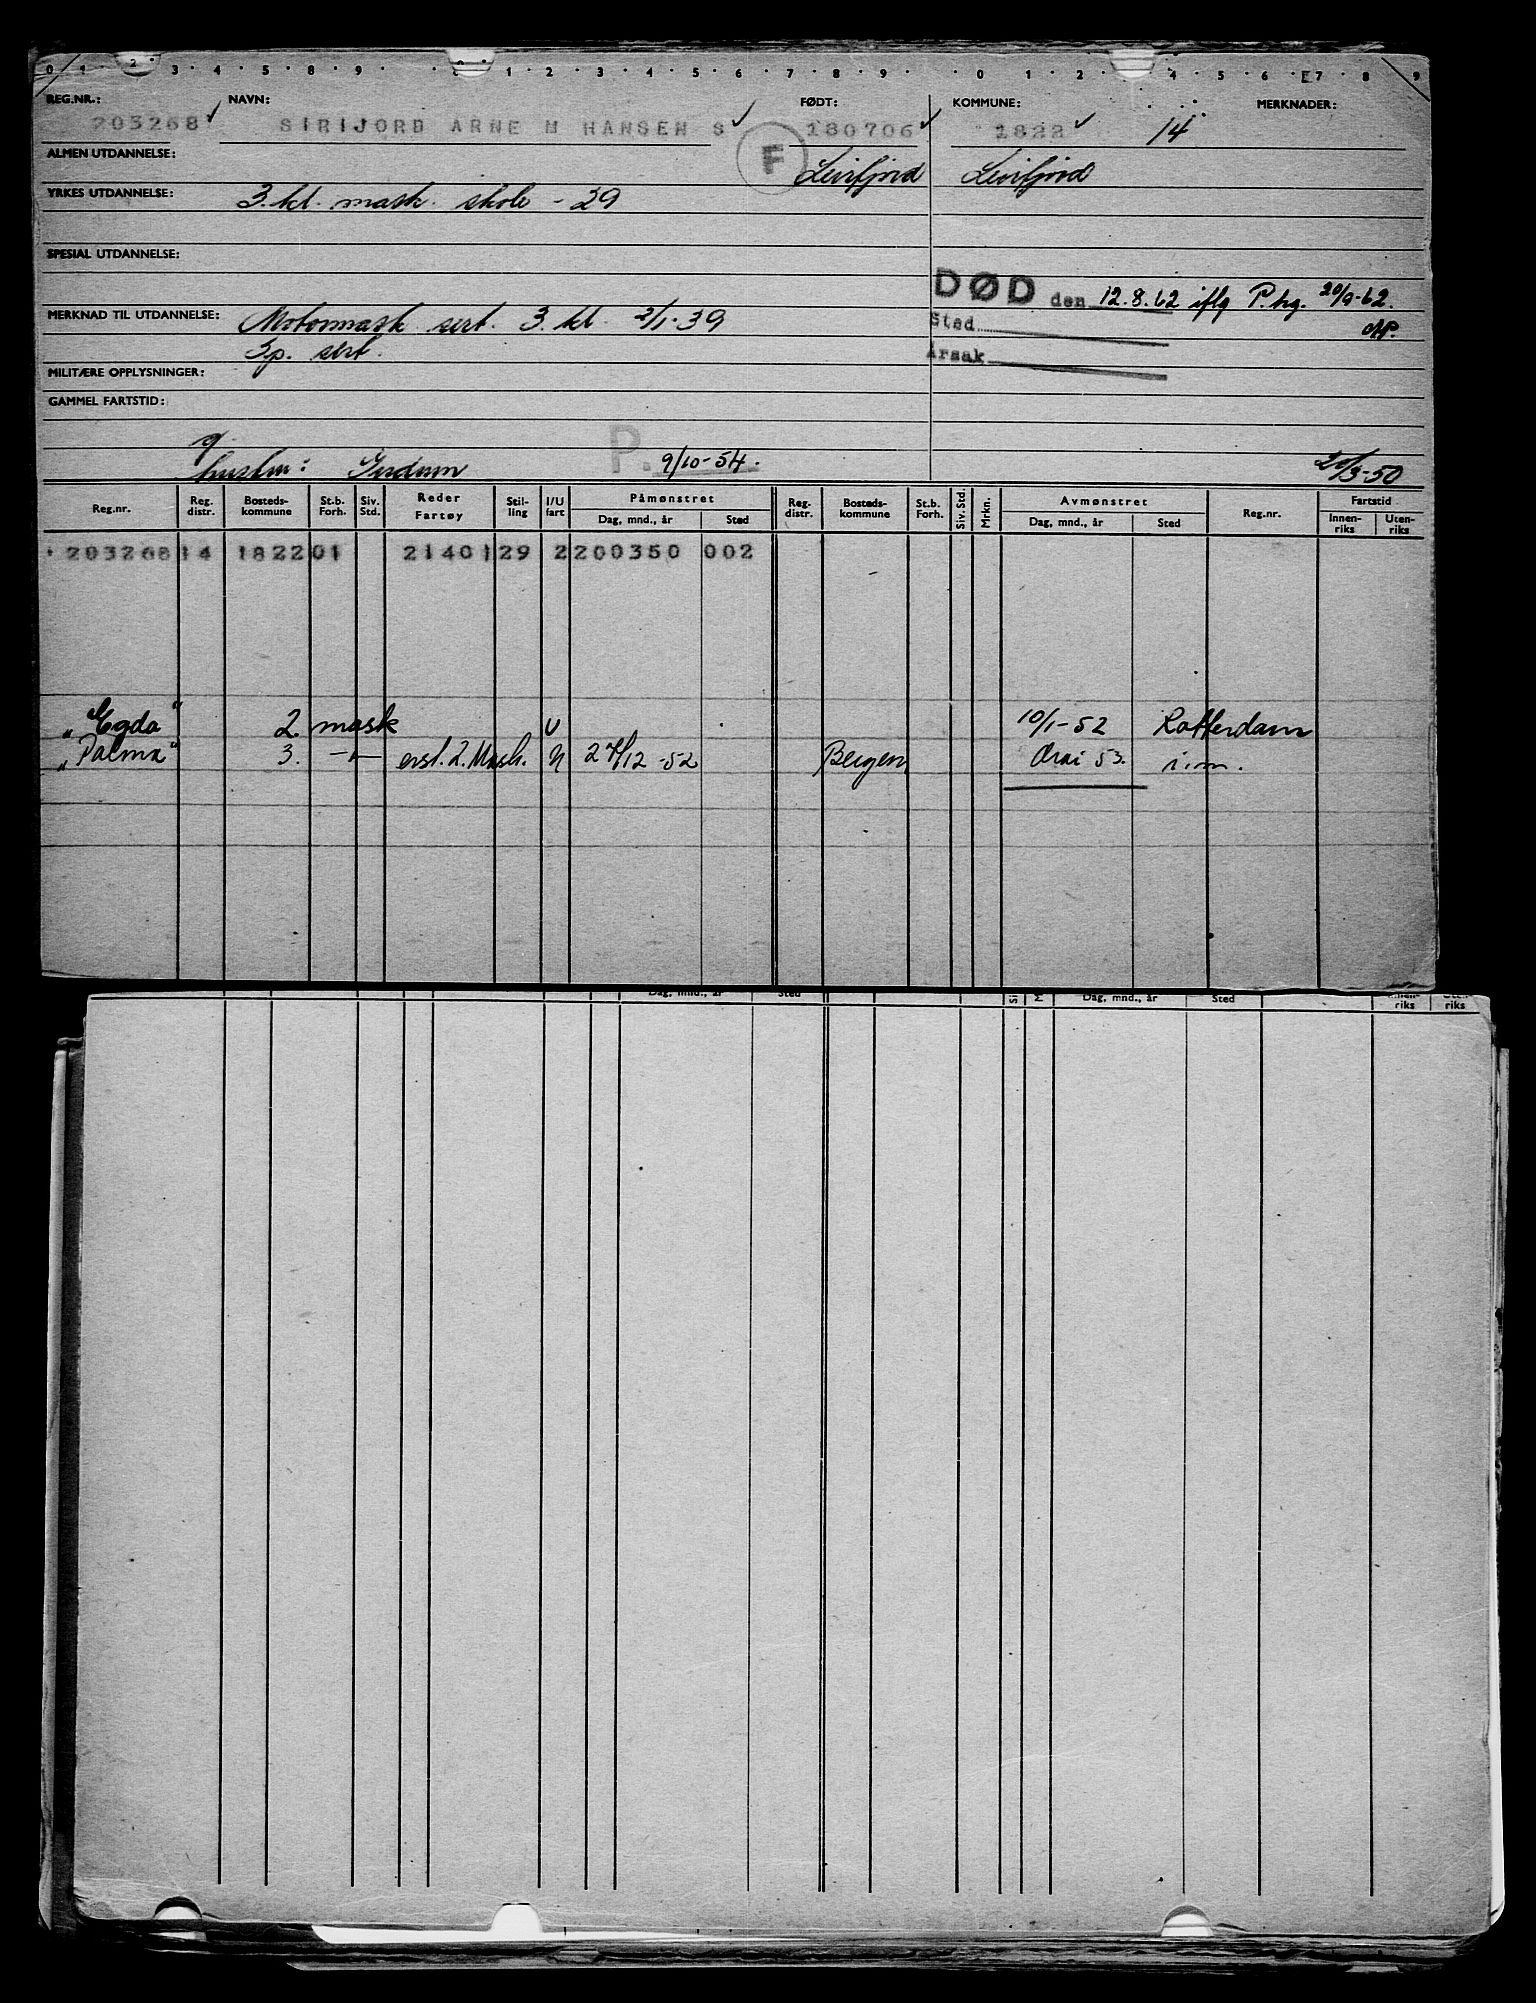 0 1 2 3 4 5 8 9 0 1 2 3 4 5 6 7 8 9 0 1 2 4 5 6 7 8 9
REG.NR.: NAVN: FØDT: KOMMUNE: MERKNADER:
203268 SIRIJORD ARNE M HANSEN S 180706 1822 14
F
ALMEN UTDANNELSE: Leirfjord Leirfjord
YRKES UTDANNELSE: 3. kl. mask. skole - 29
SPESIAL UTDANNELSE:
DØD den 12.8.62 iflg P. hg. 20/9-62.
MERKNAD TIL UTDANNELSE: Motormask sert. 3. kl. 2/1-39
Sted
Sp. sert.
Årsak
MILITÆRE OPPLYSNINGER:
GAMMEL FARTSTID:
g.
hustru: P. 9/10-54.
20/3-50
Reg.nr. Reg. distr. Bosteds-kommune St.b. Forh. Siv. Std. Reder Fartøy Stil-ling I/U fart Påmønstret Dag, mnd., år Sted Reg. distr. Bosteds-kommune St.b. Forh. Siv. Std. Mrkn. Avmønstret Dag, mnd., år Sted Reg.nr. Fartstid Innen-riks Uten-riks
203268 14 1822 01 21401 29 2 200350 002
"Egda" 2. mask U 10/1-52 Rotterdam
"Palma" 3. -"- erst. 2. Mask. N 27/12-52 Bergen 53. i.m.
Dag, mnd., år Sted Dag, mnd., år Sted riks riks